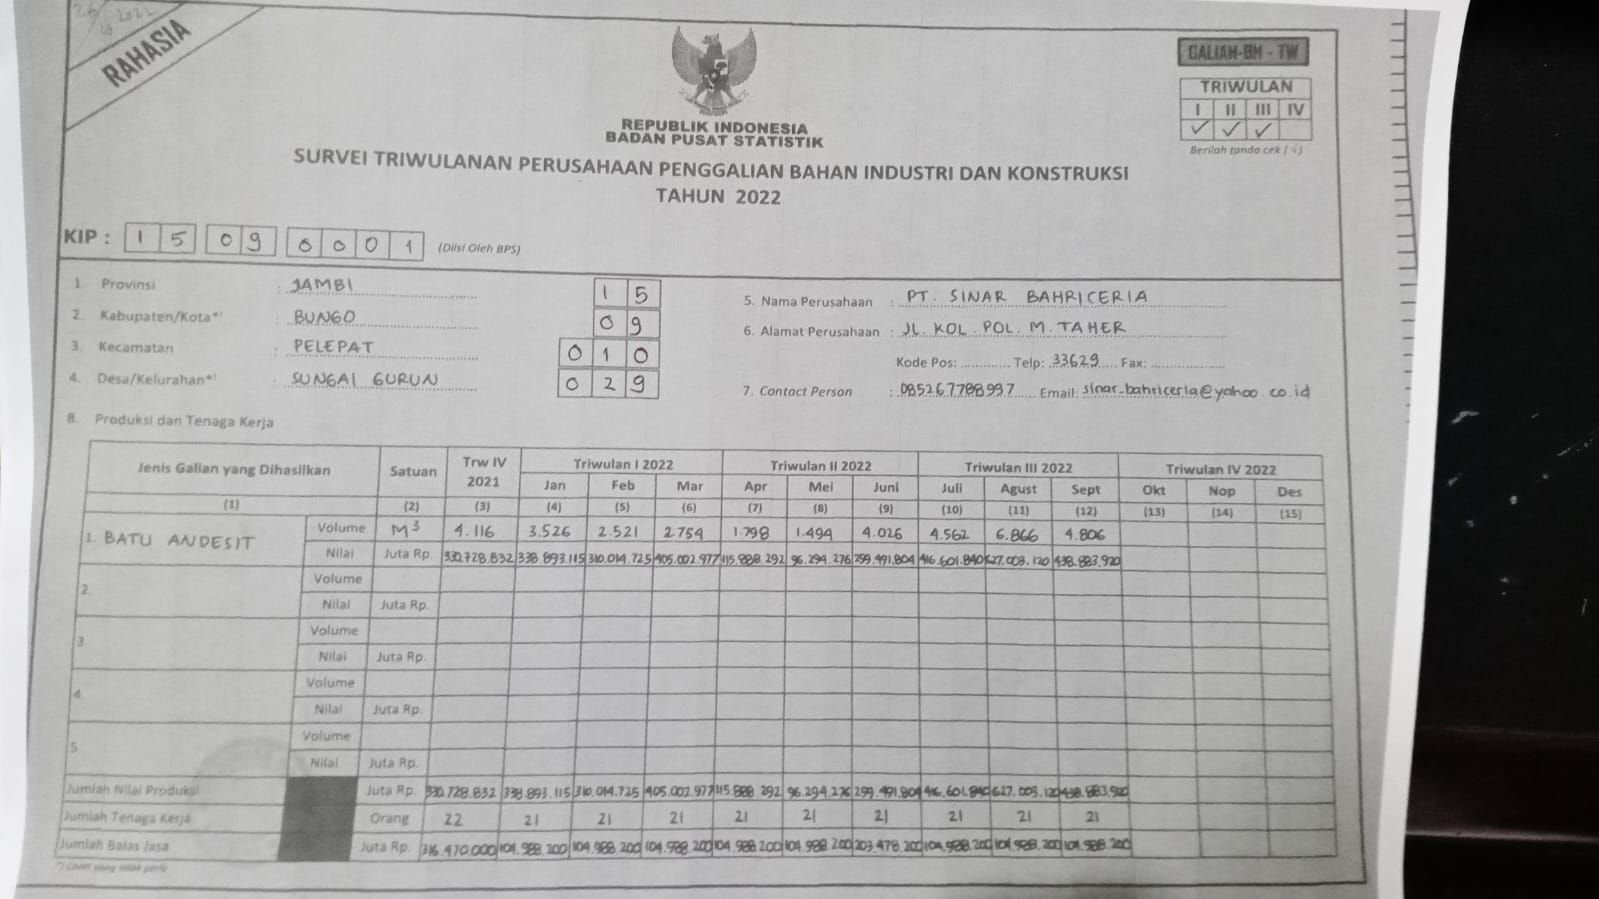 26 2022
RAHASIA
REPUBLIK INDONESIA
BADAN PUSAT STATISTIK
SURVEI TRIWULANAN PERUSAHAAN PENGGALIAN BAHAN INDUSTRI DAN KONSTRUKSI
TAHUN 2022
GALIAN-BH - TW
TRIWULAN
I II III IV
✓ ✓ ✓
Berilah tanda cek (√)
KIP : 1 5 0 9 0 0 0 1 (Diisi Oleh BPS)
1 Provinsi : JAMBI 1 5
2. Kabupaten/Kota*) : BUNGO 0 9
3. Kecamatan : PELEPAT 0 1 0
4. Desa/Kelurahan*) : SUNGAI GURUN 0 2 9
5. Nama Perusahaan : PT. SINAR BAHRICERIA
6. Alamat Perusahaan : JL. KOL. POL. M. TAHER
Kode Pos: ............ Telp: 33629 Fax: ....................
7. Contact Person : 085267788997 Email: sinar_bahriceria@yahoo.co.id
8. Produksi dan Tenaga Kerja
Jenis Galian yang Dihasilkan Satuan Trw IV 2021 Triwulan I 2022 Triwulan II 2022 Triwulan III 2022 Triwulan IV 2022
Jan Feb Mar Apr Mei Juni Juli Agust Sept Okt Nop Des
(1) (2) (3) (4) (5) (6) (7) (8) (9) (10) (11) (12) (13) (14) (15)
1. BATU ANDESIT Volume M³ 4.116 3.526 2.521 2.754 1.798 1.494 4.026 4.562 6.866 4.806
Nilai Juta Rp. 330.728.832 338.893.115 310.014.725 405.002.977 115.888.292 96.294.276 259.491.804 416.601.840 627.003.120 438.883.920
2. Volume
Nilai Juta Rp.
3. Volume
Nilai Juta Rp.
4. Volume
Nilai Juta Rp.
5. Volume
Nilai Juta Rp.
Jumlah Nilai Produksi Juta Rp. 330.728.832 338.893.115 310.014.725 405.002.977 115.888.292 96.294.276 259.491.804 416.601.840 627.003.120 438.883.920
Jumlah Tenaga Kerja Orang 22 21 21 21 21 21 21 21 21 21
Jumlah Balas Jasa Juta Rp. 316.470.000 104.988.200 104.988.200 104.988.200 104.988.200 104.988.200 203.478.200 104.988.200 104.988.200 104.988.200
*) Coret yang tidak perlu